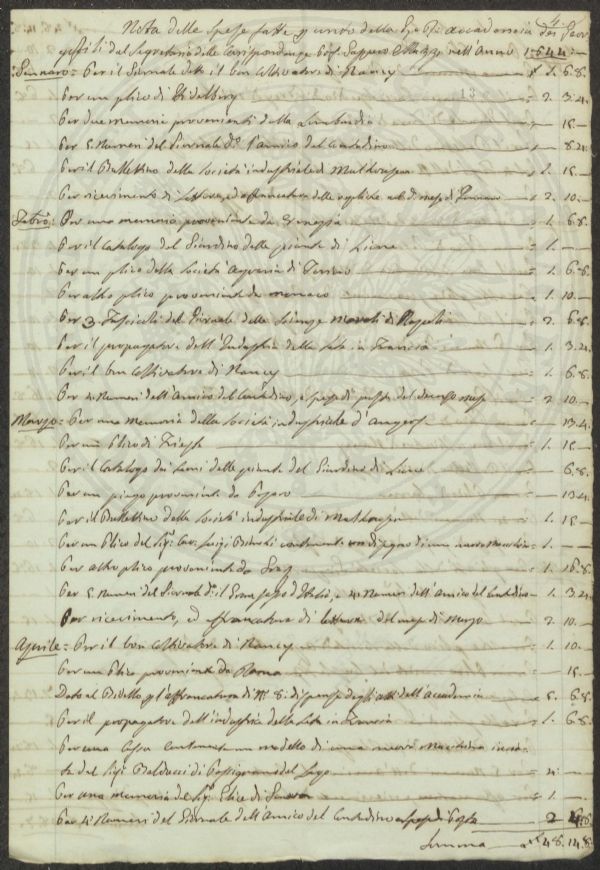 Nota delle Spese fatte p conto della Accademia dei Geor
gofili dal Segretario delle Corrispondenze nell'Anno 1844
Gennaro = Per il Giornale detto il bon Coltivatore di Nancy 1. 6.8.
Per un plico di Hidelberg 2. 3.4.
Per due memorie provenienti dalla Lombardia — 15 —
Per 5 Numeri del Giornale d.° l'amico del Contadino — 8.4
Per il Bullettino della Società industriale di Mulhausen 15 —
Per ricevimento di Lettere, ed affrancatura delle repliche nel d. mese di Gennaro 2. 10. —
Febb.° = Per una memoria proveniente da Venezia 1. 6.8.
Per il Catalogo del Giardino delle piante di 1. —
Per un plico della Società Agraria di Torino 1. 6.8.
Per altro plico proveniente da Monaco 1. 10. —
Per 3 Fascicoli del Giornale delle Scienze Morali di Napoli 2. 6.8.
Per il propagatore dell'Industria della Seta in Francia 1. 3.4.
Per il bon Coltivatore di Nancy 1. 6.8.
Per 4 Numeri dell'Amico del Contadino, e spese di posta del decorso mese 2. 10 —
Marzo = Per una memoria della Società industriale d'Angers — 13.4.
Per un Plico di Trieste 1. 15 —
Per il Catalogo dei Semi delle piante del Giardino di — 6.8.
Per un piego proveniente da Pesaro — 13.4
Per il Bullettino della Società industriale di Mulhausen 1. 15 —
Per un Plico del Sig.r Cav. Luigi contenente un disegno di una nuova Macchina 1. —
Per altro plico proveniente da 1. 16.8.
Per 5 Numeri del Giornale d.° il d'Italia, e 4 Numeri dell'Amico del Contadino 1. 3.4
Per ricevimento, ed affrancatura di lettere del mese di Marzo 2. 10. —
Aprile = Per il bon Coltivatore di Nancy 1. 10 —
Per un Plico proveniente da Roma — 15. —
Dato al p l'affrancatura di N.° 8 dispense degli atti dell'Accademia 6.8.
Per il propagatore dell'industria della Seta in Francia 1. 6.8.
Per una Cassa contenente un modello di una nuova Macchina
dal Sig.r Balducci di Passignano del Lago 4. —
Per una memoria del Sig.r di Genova 1. —
Per 4 Numeri del Giornale dell'Amico del Contadino e spese di Posta 2
Somma 48. 14.8.